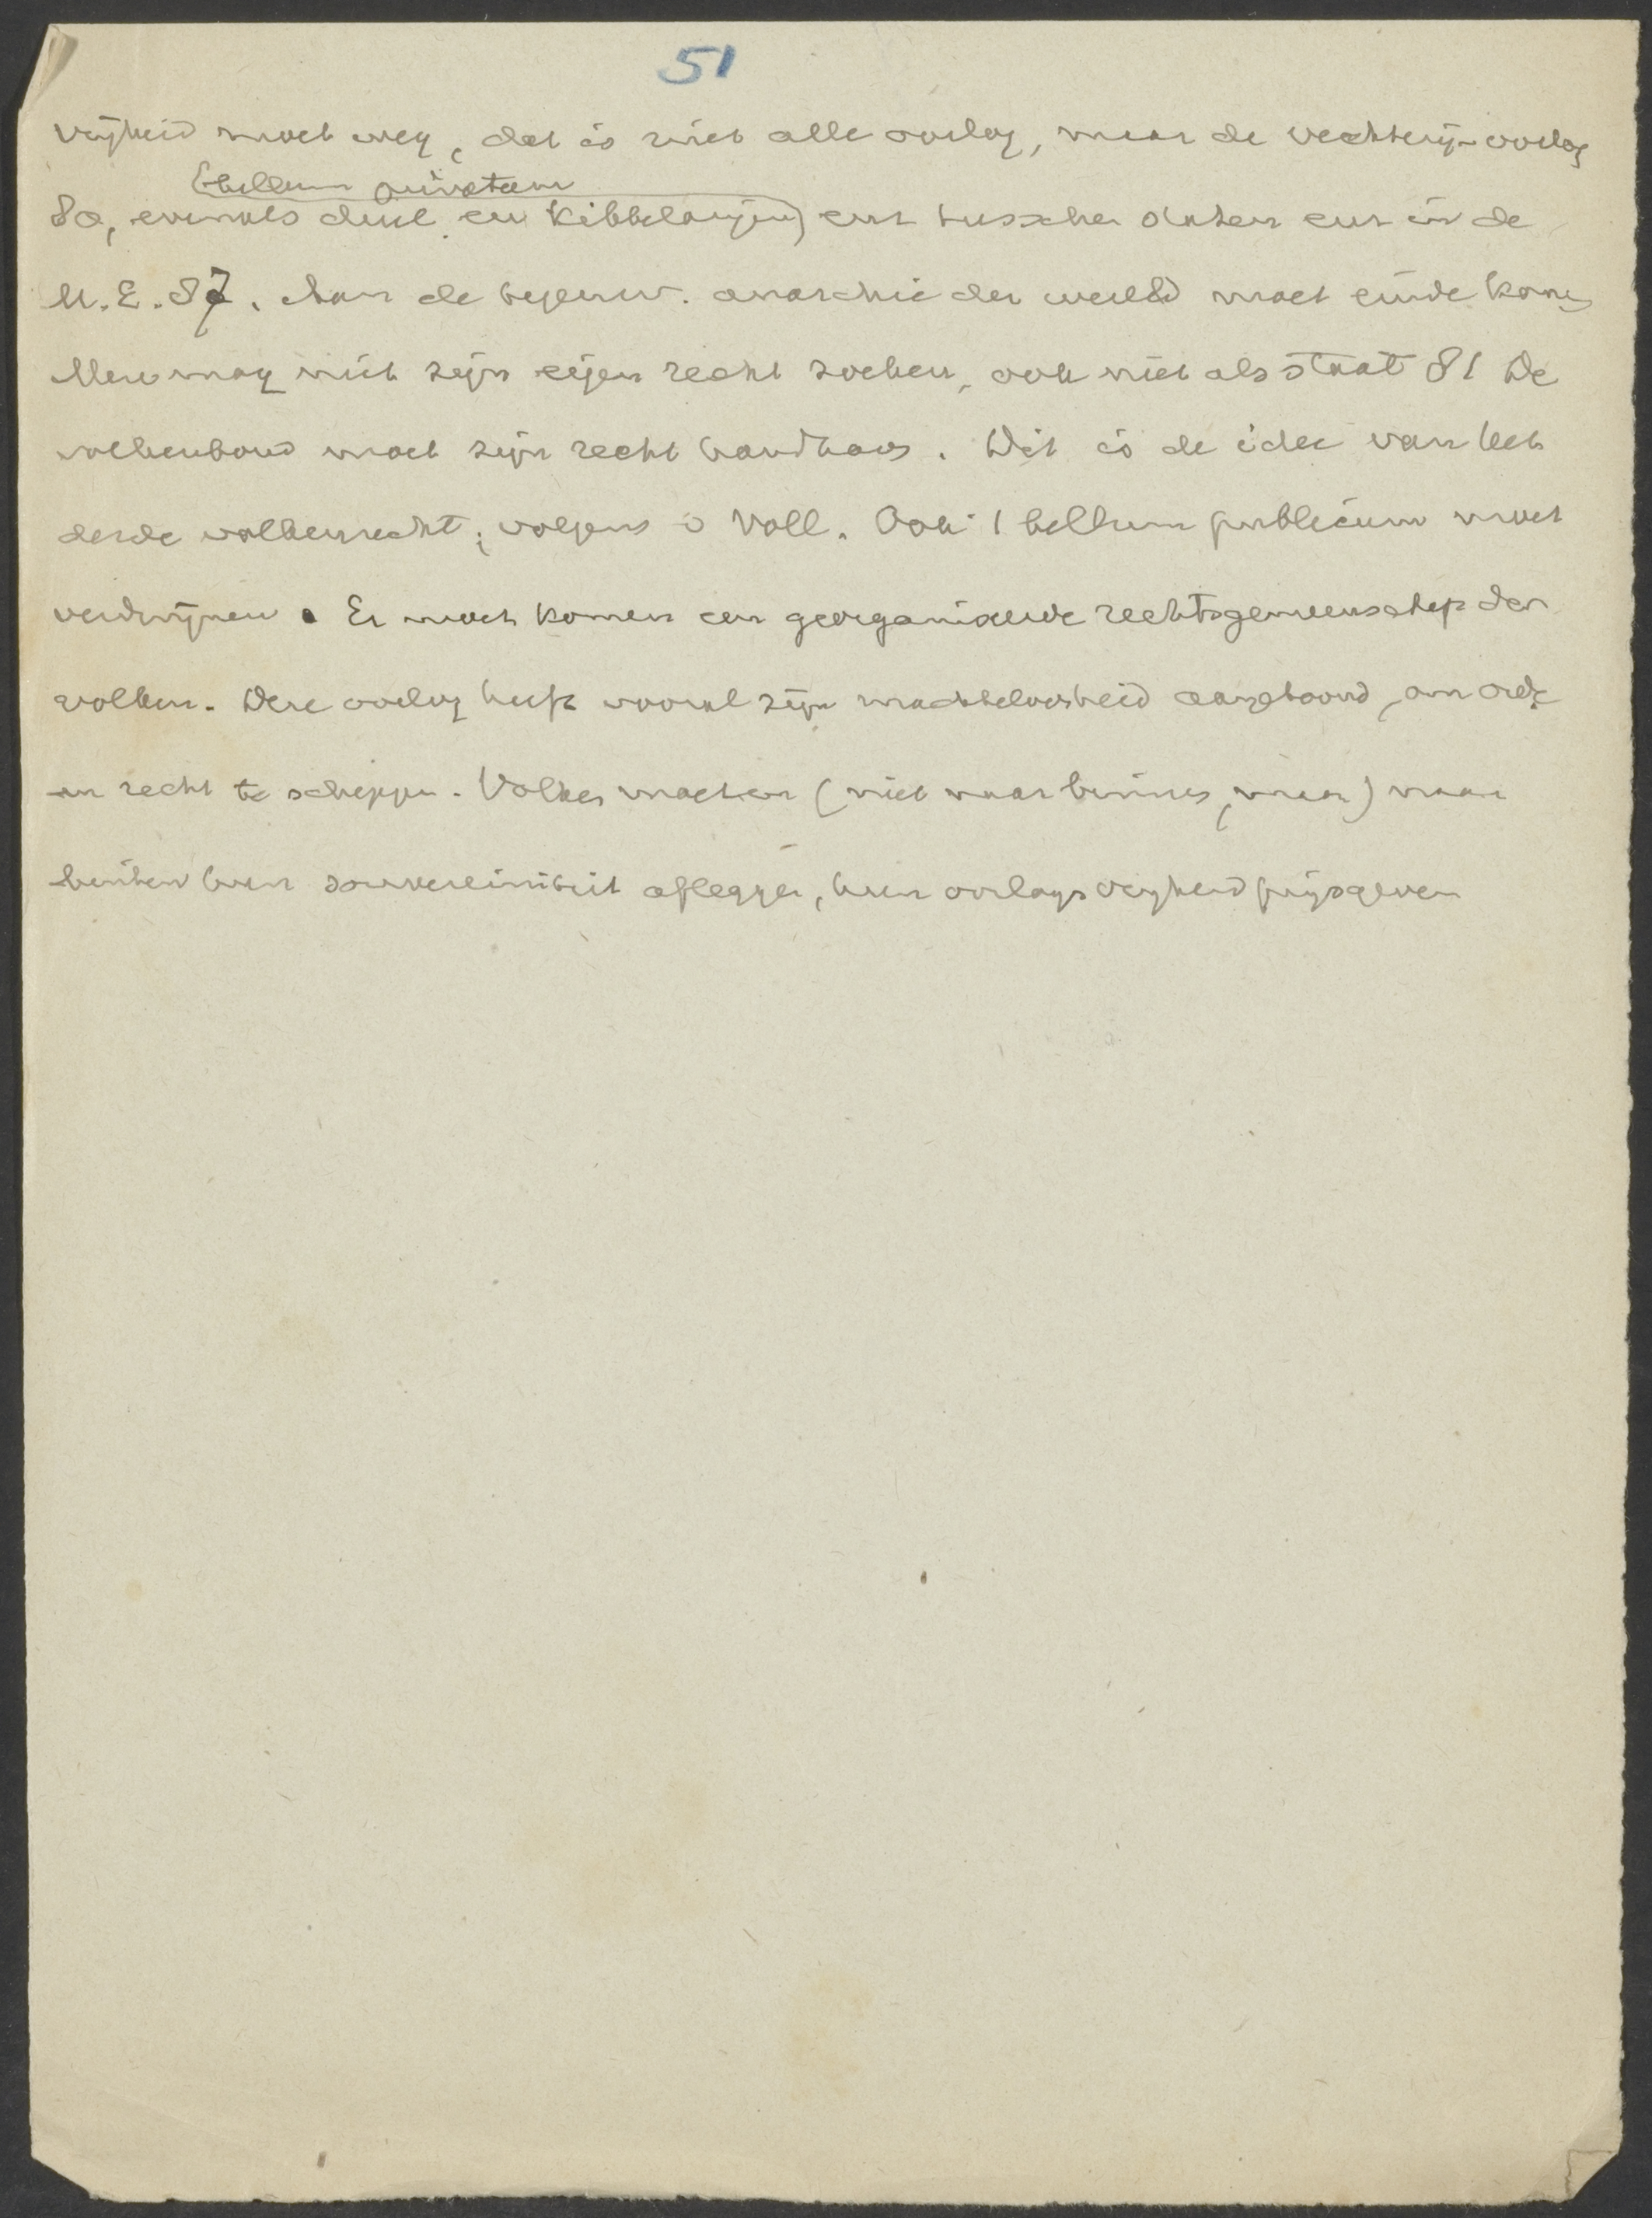 51
vrijheid moet weg, dat is niet alle oorlog, maar de vechterij-oorlog
(bellum privatum
80, evenals duel en kibbelarijen) enz tusschen staten enz in de
M.E. 87. Aan de tegenw. anarchie der wereld moet einde komen
Men mag niet zijn eigen recht zoeken, ook niet als staat 81 De
volkenbond moet zijn recht handhaven. Dit is de idee van het
derde volkenrecht, volgens v Voll. Ook 1 bellum publicum moet
verdwijnen. Er moet komen een georganiseerde rechtsgemeenschap der
volken. Deze oorlog heeft vooral zijn machteloosheid aangetoond, om orde
en recht te scheppen. Volken moeten (niet naar binnen, maar) naar
buiten hun souvereiniteit afleggen, hun oorlogsvrijheid prijsgeven